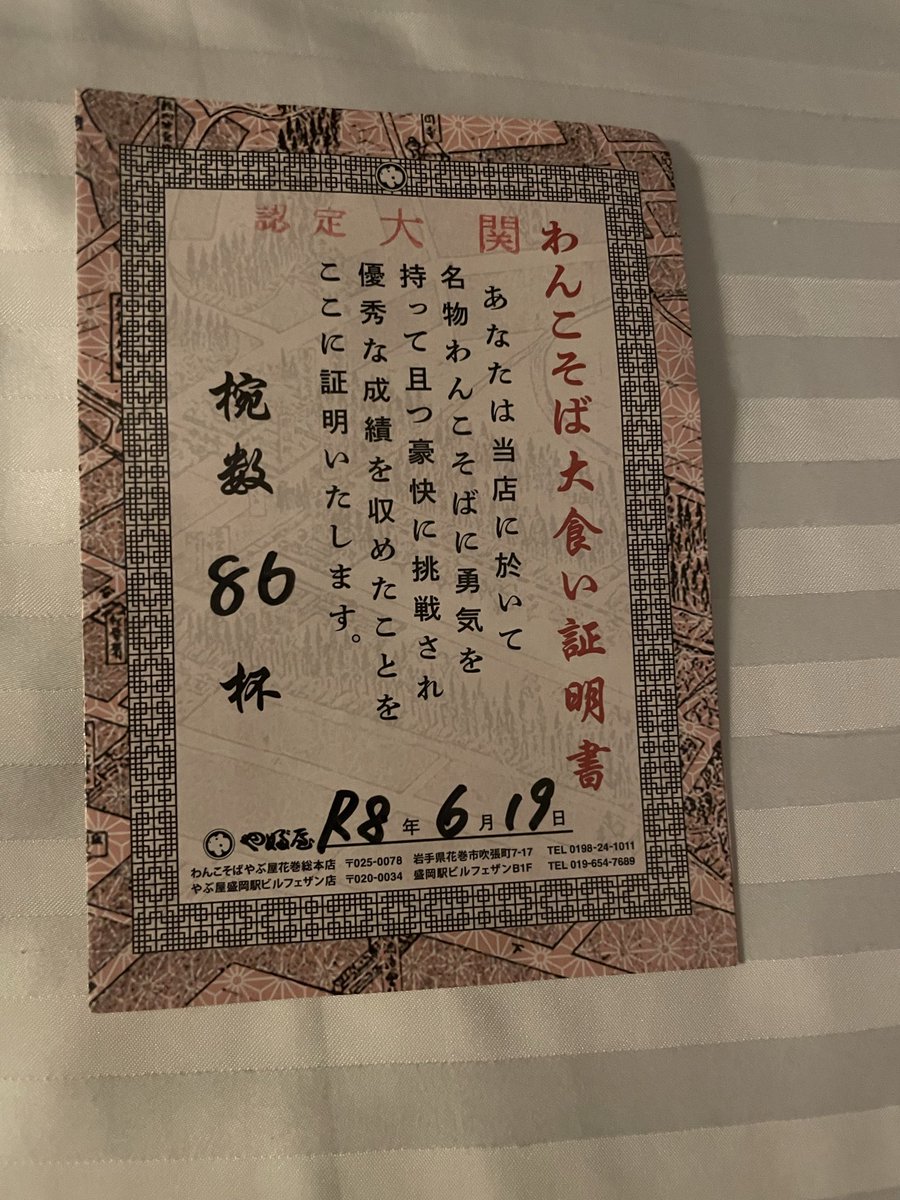 わんこそば大食い証明書
認定 大関
あなたは当店に於いて
名物わんこそばに勇気を
持って且つ豪快に挑戦され
優秀な成績を収めたことを
ここに証明いたします。
椀数 86 杯
やぶ屋 R8年6月19日
わんこそばやぶ屋花巻総本店 〒025-0078 岩手県花巻市吹張町7-17 TEL 0198-24-1011
やぶ屋盛岡駅ビルフェザン店 〒020-0034 盛岡駅ビルフェザンB1F TEL 019-654-7689